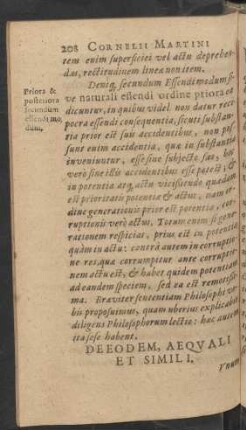 208 CORNELII MARTINI
tem enim superficiei vel actu deprehen-
das, rectitudinem linea non item.
Deniq, secundum Essendi modum si-
Priora &
posteriora
secundum
essendi mo
dum.
ve naturali essendi ordine priora
dicuntur, in quibus videl. non datur reci-
proca essendi consequentia, sicuti substan-
tia prior est suis accidentibus, non pos-
sunt enim accidentia, quæ in substantia
inveniuntur, esse sine subjecto suo, hoc
verò sine istis accidentibus esse potest, &
in potentia arg, actu vicissitudo quædam
est prioritatis potentiæ & actus, nam or-
dine generationis prior est potentia, cor-
ruptionis verò actus. Totum enim si gene-
rationem respicias, prius est in potentia
quàm in actu: contrà autem in corruptio-
ne res quæ corrumpitur ante corruptio-
nem actu est, & habet quidem potentiam
ad eandem speciem, sed ea est remotissi-
ma. Breviter sententiam Philosophi ver-
bis proposuimus, quam uberius explicabit
diligens Philosophorum lectio: hæc autem
ita sese habent.
DE EODEM, ÆQUALI
ET SIMILI.
Vnum